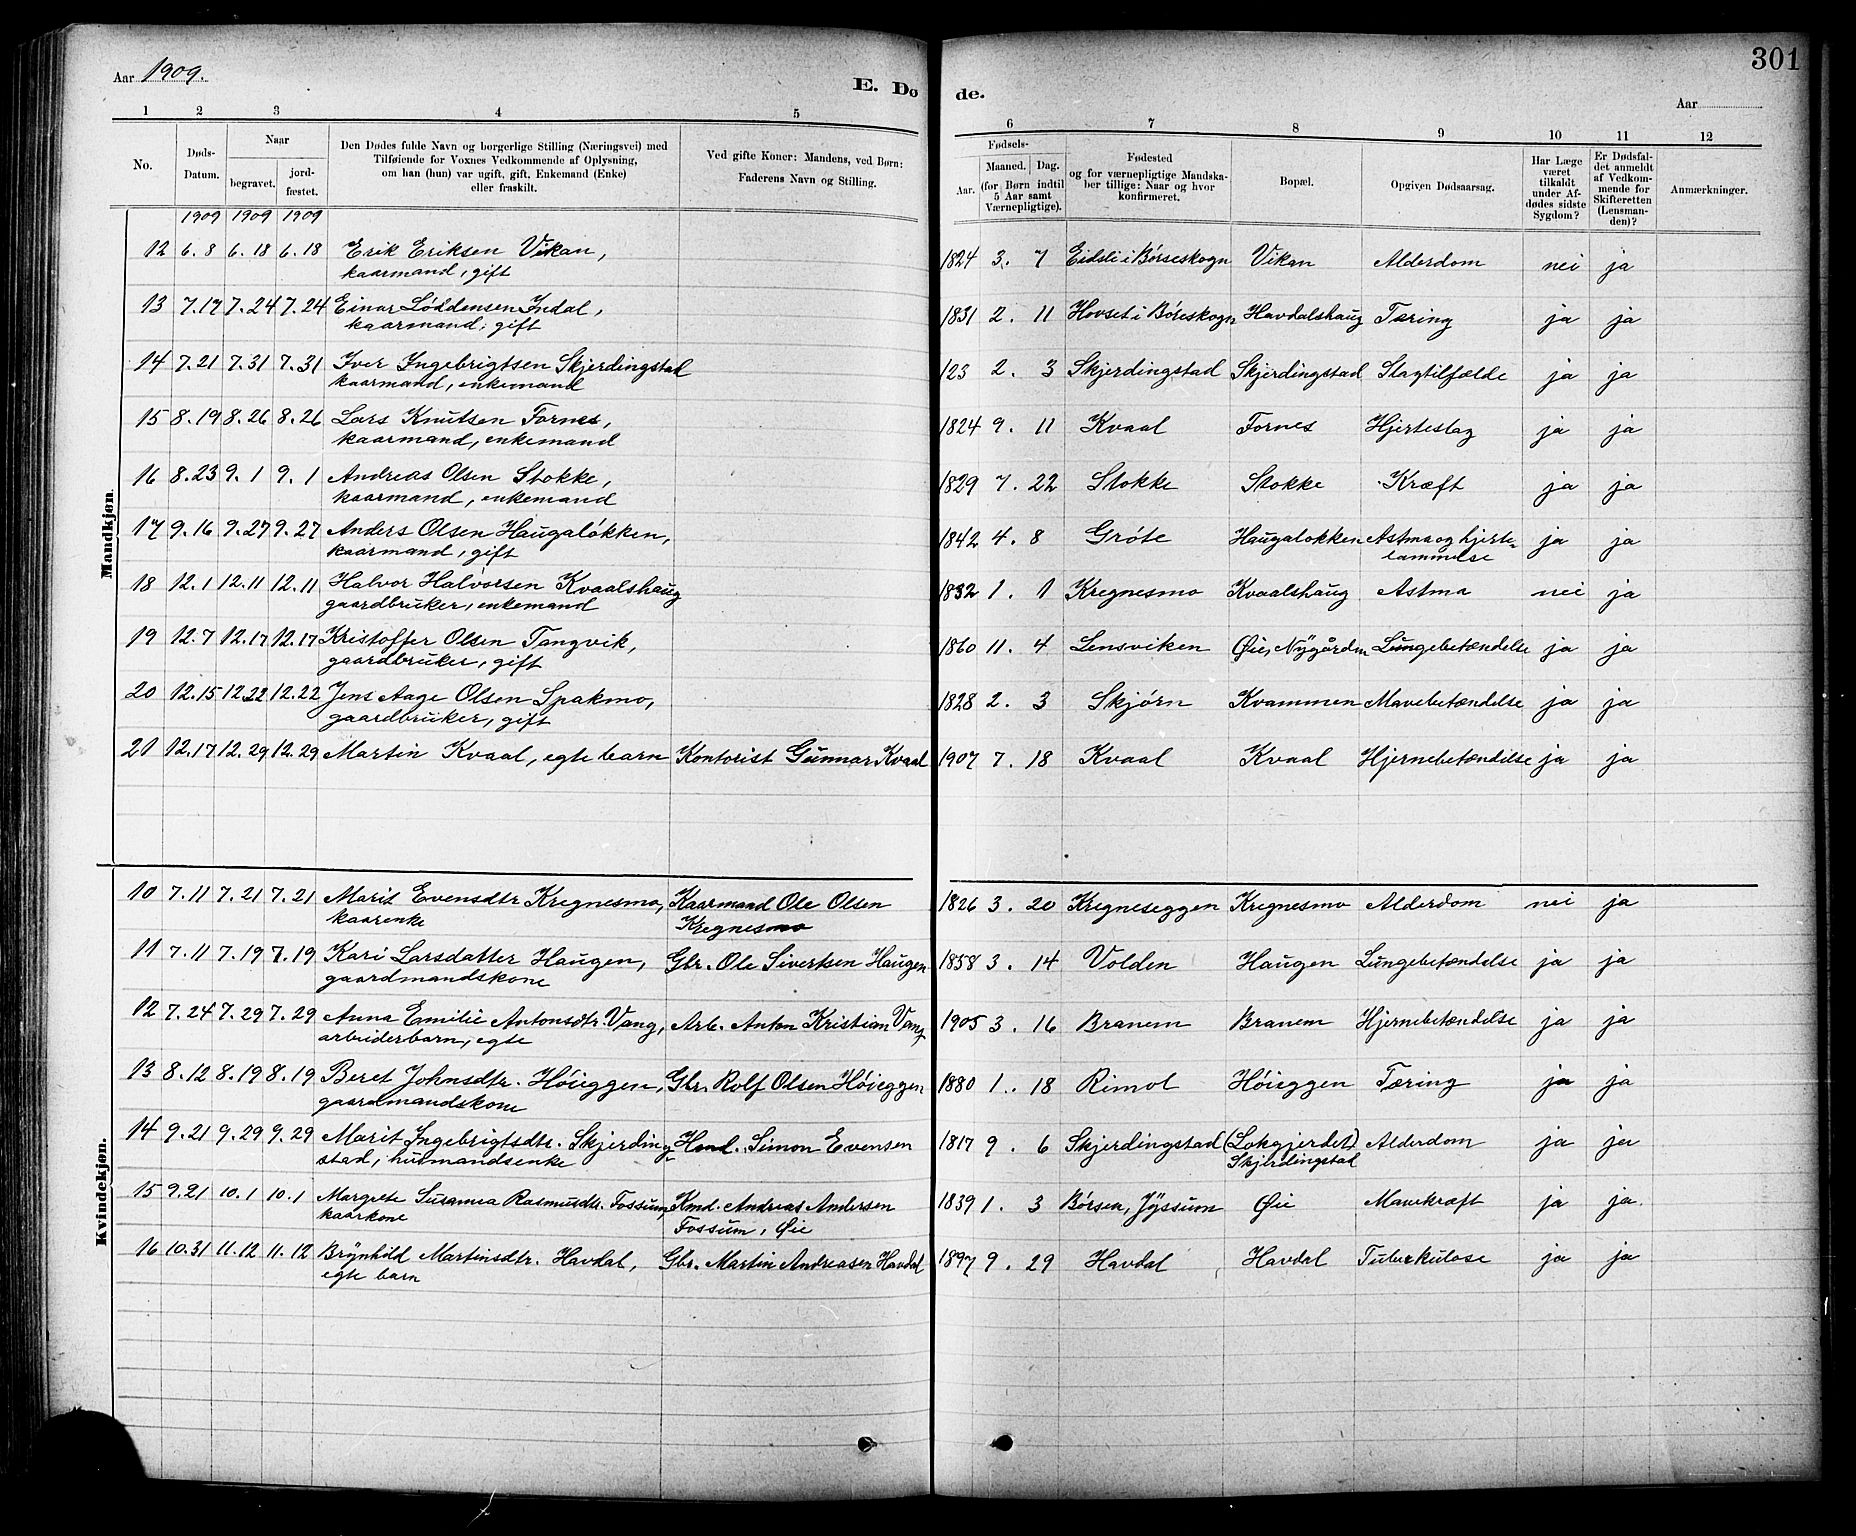 301
Aar 1909.
E. Dø
de.
Aar
1 2 3 4 5 6 7 8 9 10 11 12
No.
Døds-Datum.
Naar
begravet.
jord-fæstet.
Den Dødes fulde Navn og borgerlige Stilling (Næringsvei) med
Tilføiende for Voxnes Vedkommende af Oplysning,
om han (hun) var ugift, gift, Enkemand (Enke)
eller fraskilt.
Ved gifte Koner: Mandens, ved Børn:
Faderens Navn og Stilling.
Fødsels-
Aar.
Maaned. Dag.
(for Børn indtil
5 Aar samt
Værnepligtige).
Fødested
og for værnepligtige Mandska-
ber tillige: Naar og hvor
konfirmeret.
Bopæl.
Opgiven Dødsaarsag.
Har Læge
været
tilkaldt
under Af-
dødes sidste
Sygdom?
Er Dødsfal-
det anmeldt
af Vedkom-
mende for
Skifteretten
(Lensman-
den)?
Anmærkninger.
Mandkjøn.
1909 1909 1909
12 6.8 6.18 6.18 Erik Eriksen Vikan, 1824 3. 7 Eidsli i Börseskogn Vikan Alderdom nei ja
kaarmand, gift
13 7.17 7.24 7.24 Einar Löddensen Indal, 1831 2. 11 Hovset i Böreskogn Havdalshaug Tæring ja ja
kaarmand, gift
14 7.21 7.31 7.31 Iver Ingebrigtsen Skjerdingstad 123 2. 3 Skjerdingstad Skjerdingstad Slagtilfælde ja ja
kaarmand, enkemand
15 8.19 8.26 8.26 Lars Knutsen Fornes, 1824 9. 11 Kvaal Fornes Hjerteslag ja ja
kaarmand, enkemand
16 8.23 9.1 9.1 Andreas Olsen Stokke, 1829 7. 22 Stokke Stokke Kræft ja ja
kaarmand, enkemand
17 9.16 9.27 9.27 Anders Olsen Haugalökken, 1842 4. 8 Gröte Haugalokken Astma og hjerte- ja ja
kaarmand, gift lammelse
18 12.1 12.11 12.11 Halvor Halvorsen Kvaalshaug 1832 1. 1 Kregnesmo Kvaalshaug Astma nei ja
gaardbruker, enkemand
19 12.7 12.17 12.17 Kristoffer Olsen Tangvik, 1860 11. 4 Lensviken Øie, Nygården Lungebetændelse ja ja
gaardbruker, gift
20 12.15 12.22 12.22 Jens Aage Olsen Spakmo, 1828 2. 3 Skjörn Kvammen Mavebetændelse ja ja
gaardbruker, gift
21 12.17 12.29 12.29 Martin Kvaal, egte barn Kontorist Gunnar Kvaal 1907 7. 18 Kvaal Kvaal Hjernebetændelse ja ja
Kvindekjøn.
10 7.11 7.21 7.21 Marit Evensdtr Kregnesmo, Kaarmand Ole Olsen 1826 3. 20 Kregneseggen Kregnesmo Alderdom nei ja
kaarenke Kregnesmo
11 7.11 7.19 7.19 Kari Larsdatter Haugen, Gbr. Ole Sivertsen Haugen 1858 3. 14 Volden Haugen Lungebetændelse ja ja
gaardmandskone
12 7.24 7.29 7.29 Anna Emilie Antonsdtr. Vang, Arb. Anton Kristian Vang 1905 3. 16 Branem Branem Hjernebetændelse ja ja
arbeiderbarn, egte
13 8.12 8.19 8.19 Beret Johnsdtr. Höieggen, Gbr. Rolf Olsen Höieggen 1880 1. 18 Rimol Höieggen Tæring ja ja
gaardmandskone
14 9.21 9.29 9.29 Marit Ingebrigtsdtr. Skjerding- Hmd. Simon Evensen 1817 9. 6 Skjerdingstad (Lokgjerdet) Alderdom ja ja
stad, husmandsenke Skjerdingstad
15 9.21 10.1 10.1 Margrete Susanna Rasmusdtr. Fossum, Kmd. Andreas Andersen 1839 1. 3 Börsen, Jyssum Øie Mavekræft ja ja.
kaarkone Fossum, Øie
16 10.31 11.12 11.12 Brynhild Martinsdtr. Havdal, Gbr. Martin Andreasen Havdal 1897 9. 29 Havdal Havdal Tuberkulose ja ja
egte barn